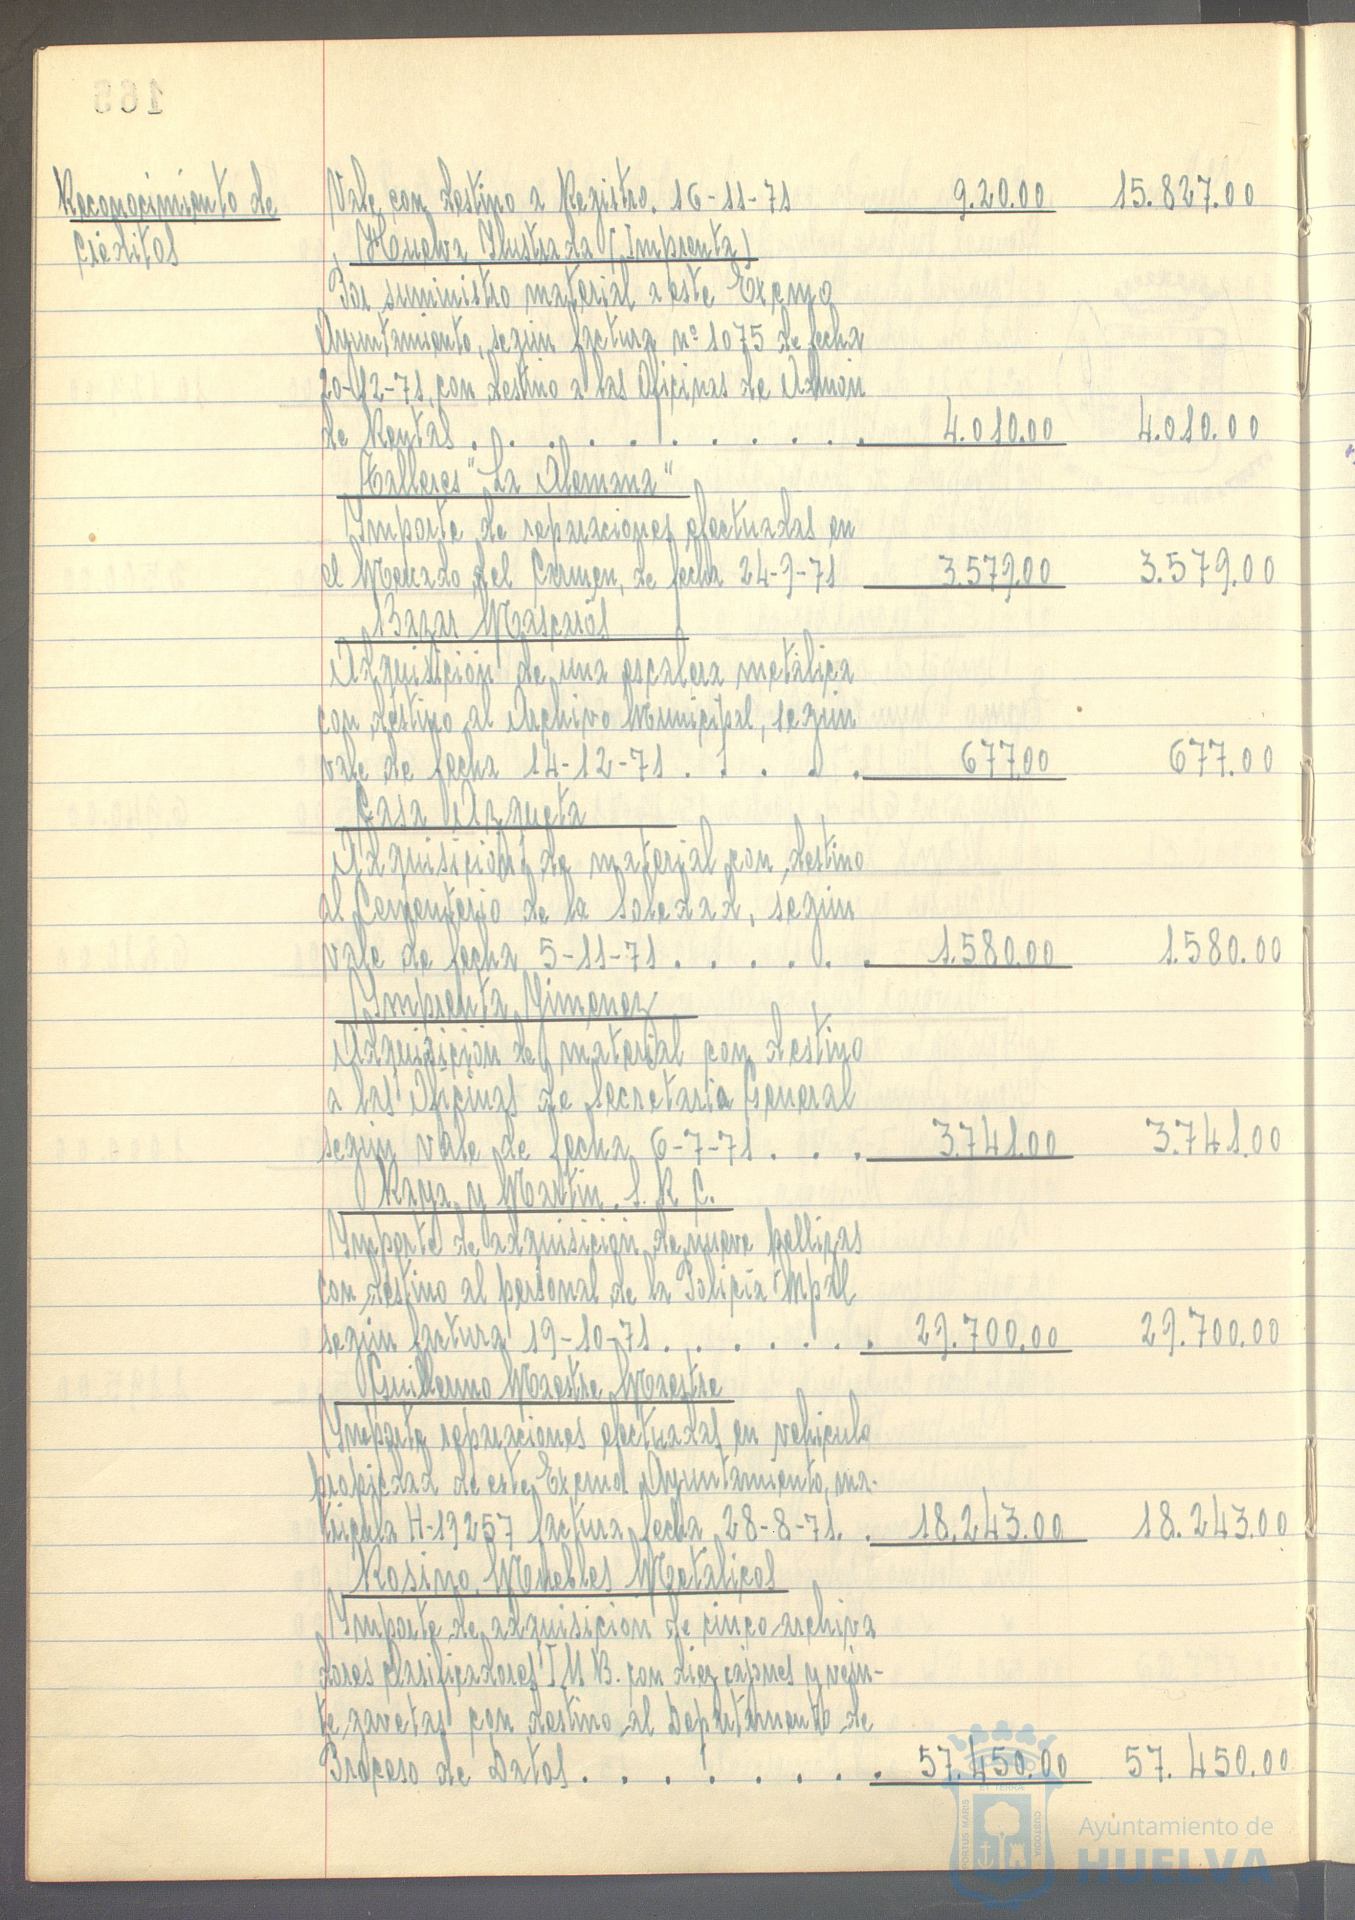 Reconocimiento de
créditos
Vale con destino a Registro. 16-11-71 9.20.00 15.827.00
Huelva Ilustrada (Imprenta)
Por suministro material a este Excmo
Ayuntamiento, según factura nº 1075 de fecha
20-12-71, con destino a las Oficinas de Admon
de Rentas . . . . . . . . . . 4.010.00 4.010.00
Talleres "La Alemana"
Importe de reparaciones efectuadas en
el Mercado del Carmen, de fecha 24-9-71 3.579.00 3.579.00
Bazar Mascarós
Adquisición de una escalera metálica
con destino al Archivo Municipal, según
vale de fecha 14-12-71 . . . . . 677.00 677.00
Casa Azqueta
Adquisición de material con destino
al Cementerio de la Soledad, según
vale de fecha 5-11-71 . . . . . . 1.580.00 1.580.00
Imprenta Jimenez
Adquisición de material con destino
a las Oficinas de Secretaria General
según vale de fecha 6-7-71 . . . 3.741.00 3.741.00
Raya y Martin, S. R. C.
Importe de adquisición de nueve pellizas
con destino al personal de la Policía Mpal
según factura 19-10-71 . . . . . . . 29.700.00 29.700.00
Guillermo Maestre Maestre
Importe reparaciones efectuadas en vehiculo
propiedad de este Excmo Ayuntamiento, ma-
tricula H-19257 factura fecha 28-8-71. . 18.243.00 18.243.00
Rosino, Muebles Metálicos
Importe de adquisición de cinco archiva
dores clasificadores I M B. con diez cajones y vein-
te gavetas con destino al Departamento de
Proceso de Datos . . . . . . . . 57.450.00 57.450.00
PORTUS MARIS
ET TERRAE
CUSTODIA
Ayuntamiento de
HUELVA